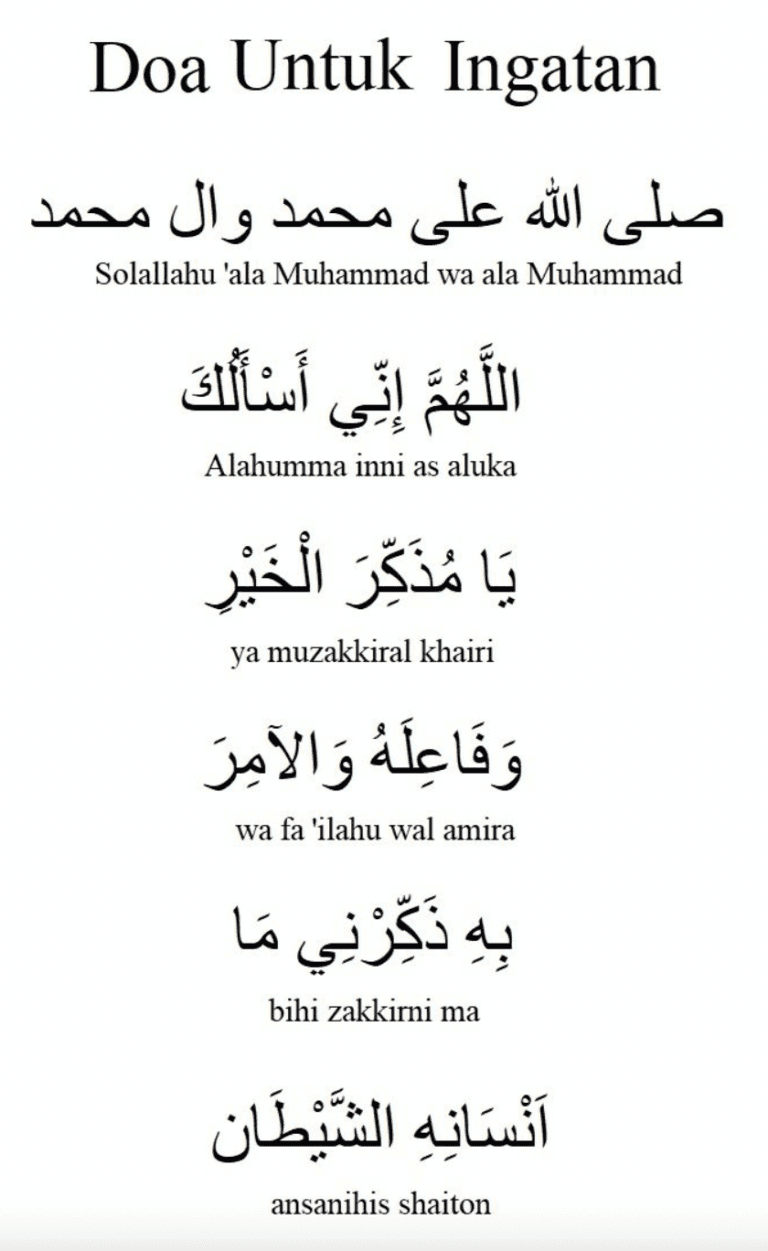 Doa Untuk Ingatan
صلى الله على محمد وال محمد
Solallahu 'ala Muhammad wa ala Muhammad
اللَّهُمَّ إِنِّي أَسْأَلُكَ
Alahumma inni as aluka
يَا مُذَكِّرَ الْخَيْرِ
ya muzakkiral khairi
وَفَاعِلَهُ وَالآمِرَ
wa fa 'ilahu wal amira
بِهِ ذَكِّرْنِي مَا
bihi zakkirni ma
اَنْسَانِهِ الشَّيْطَان
ansanihis shaiton